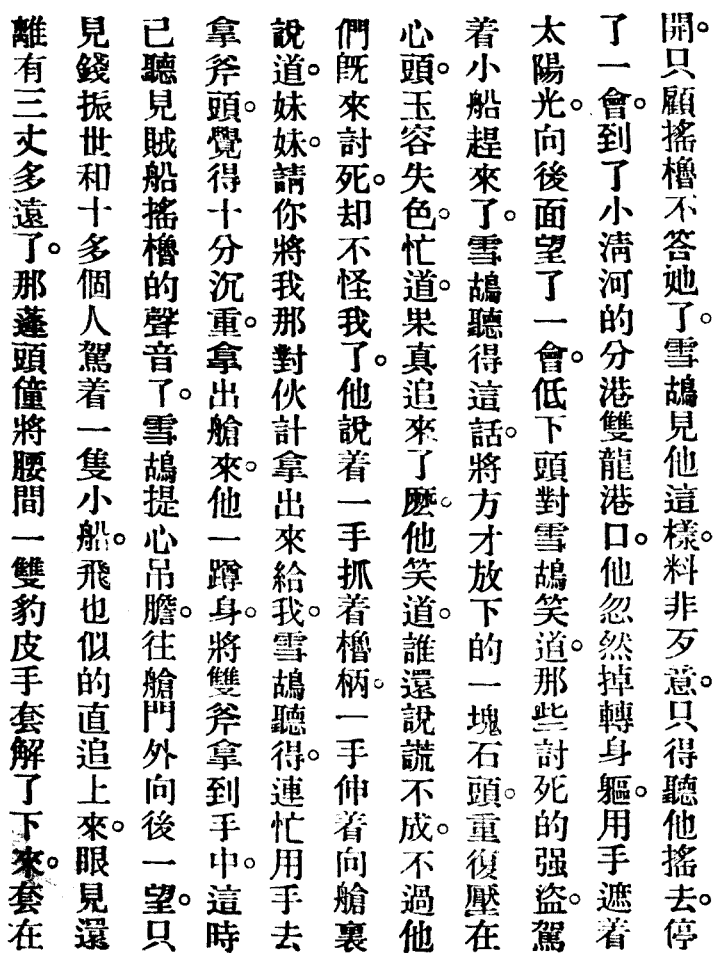 開。只顧搖櫓不答她了。雪鴣見他這樣。料非歹意。只得聽他搖去。停
了一會。到了小淸河的分港雙龍港口。他忽然掉轉身軀。用手遮着
太陽光。向後面望了一會。低下頭對雪鴣笑道。那些討死的强盜。駕
着小船趕來了。雪鴣聽得這話。將方才放下的一塊石頭。重復壓在
心頭。玉容失色。忙道。果眞追來了麽。他笑道。誰還說謊不成。不過他
們旣來討死。却不怪我了。他說着一手抓着櫓柄。一手伸着向艙裏
說道。妹妹。請你將我那對伙計拿出來給我。雪鴣聽得。連忙用手去
拿斧頭。覺得十分沉重。拿出艙來。他一蹲身。將雙斧拿到手中。這時
已聽見賊船搖櫓的聲音了。雪鴣提心吊膽。往艙門外向後一望。只
見錢振世和十多個人駕着一隻小船。飛也似的直追上來。眼見還
離有三丈多遠了。那蓬頭僮將腰間一雙豹皮手套解了下來。套在